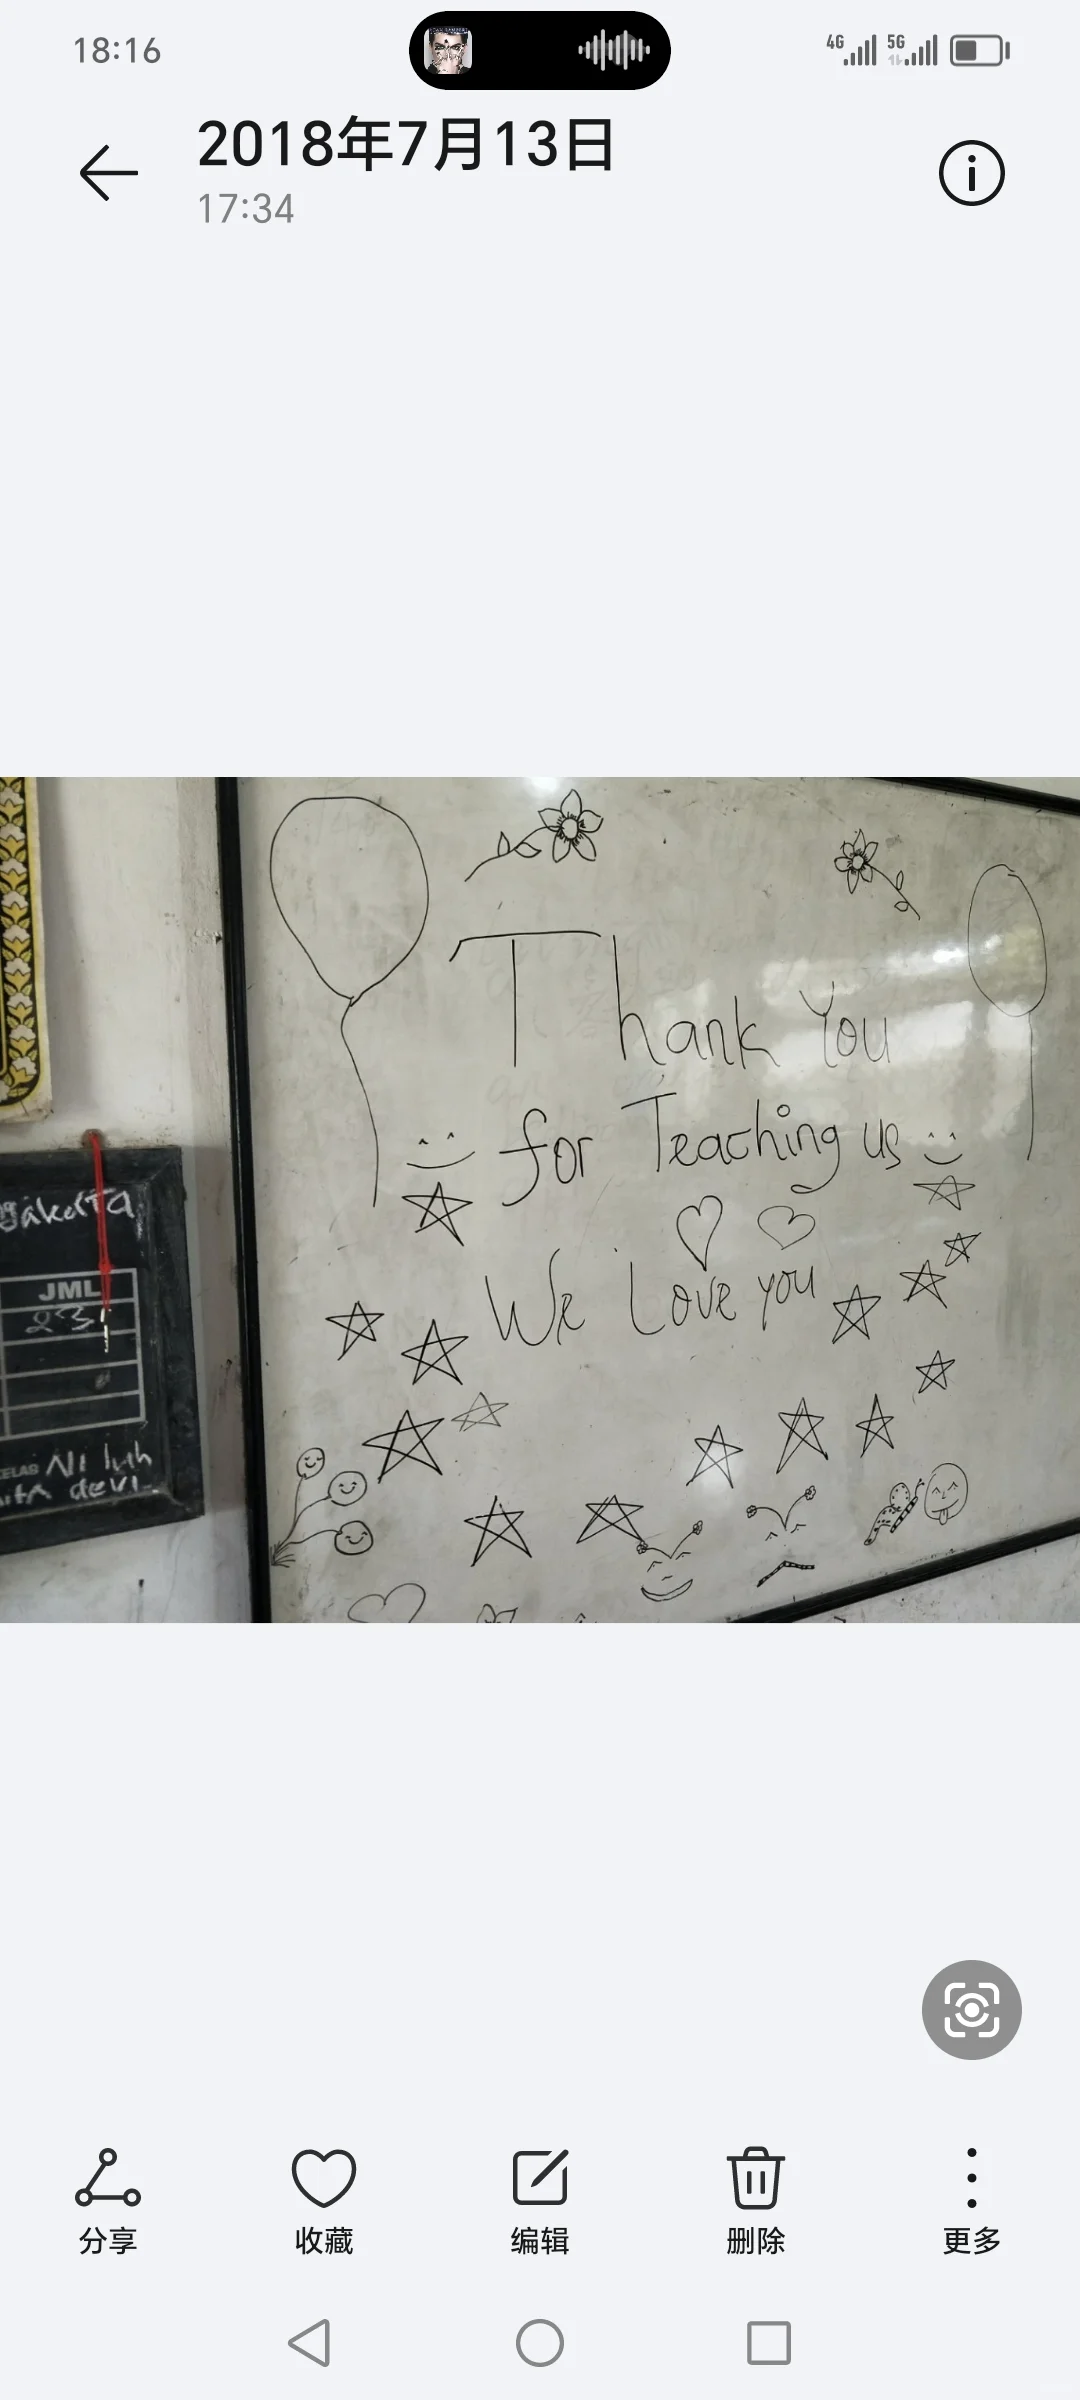 18:16
4G 5G
2018年7月13日
17:34
Thank You
for Teaching us
We Love you
JML
23
Ni luh
devi
分享 收藏 编辑 删除 更多